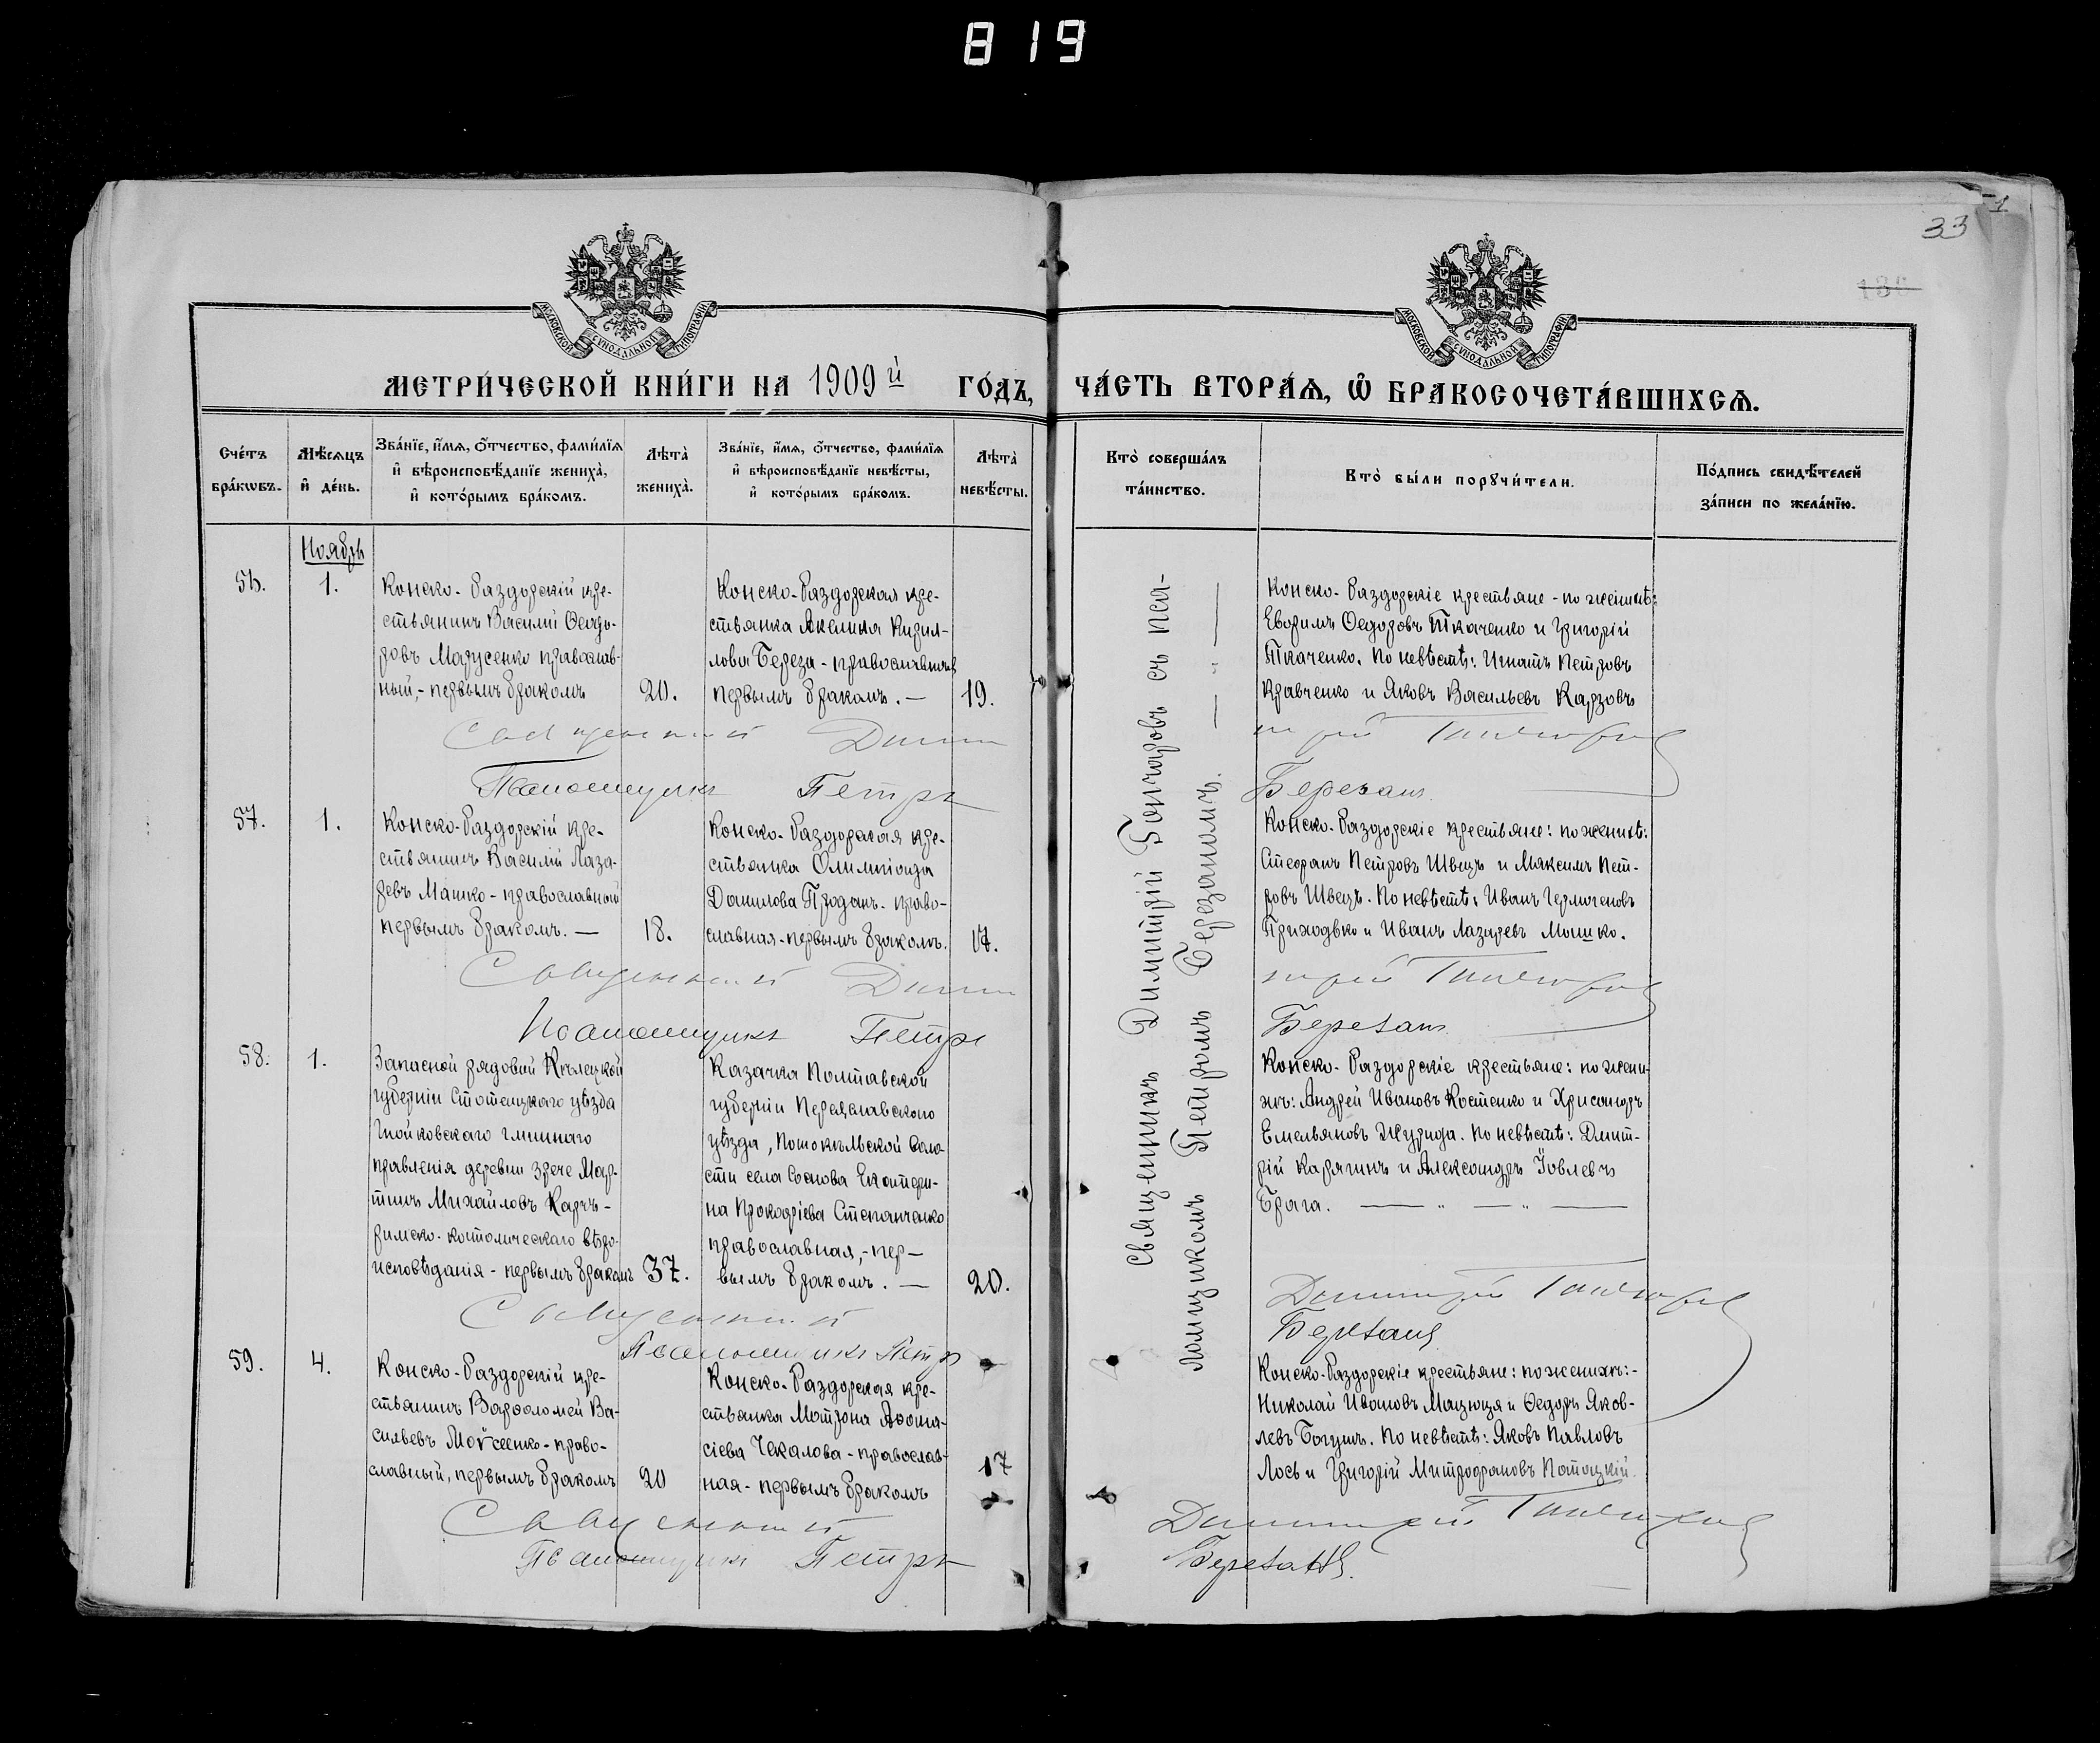 819
33
1
138
МОСКОВСКОЙ СѴНОДАЛЬНОЙ ТИПОГРАФІИ
МОСКОВСКОЙ СѴНОДАЛЬНОЙ ТИПОГРАФІИ
МЕТРИ́ЧЕСКОЙ КНИ́ГИ НА 1909й ГО́ДЪ,
ЧА́СТЬ ВТОРА́Ѧ, Ѽ БРАКОСОЧЕТА́ВШИХСѦ.
Сче́тъ бра́кѡвъ.
Мѣ́сѧцъ и҆ де́нь.
Зва́нїе, и҆́мѧ, ѻ҆́тчество, фами́лїѧ
и҆ вѣроисповѣ́данїе жениха̀,
и҆ кото́рымъ бра́комъ.
Лѣта̀ жениха̀.
Зва́нїе, и҆́мѧ, ѻ҆́тчество, фами́лїѧ
и҆ вѣроисповѣ́данїе невѣ́сты,
и҆ кото́рымъ бра́комъ.
Лѣта̀ невѣ́сты.
Кто̀ соверша́лъ
та́инство.
Кто̀ бы́ли порꙋчи́тели.
По́дпись свидѣ́телей
за́писи по жела́нїю.
Ноябрь
56.
1.
Конско-Раздорскій кре-
стьянинъ Василій Ѳеодо-
ровъ Марусенко православ-
ный,- первымъ бракомъ
20.
Конско-Раздорская кре-
стьянка Акилина Кирил-
лова Береза - православная
первымъ бракомъ. —
19.
Священникъ Димитрій Гончаровъ съ пса-
ломщикомъ Петромъ Березаномъ. — „ —
Конско-Раздорскіе крестьяне - по женихѣ:
Евфимъ Ѳедоровъ Ткаченко и Григорій
Ткаченко. По невѣстѣ: Игнатъ Петровъ
Кравченко и Яковъ Васильевъ Карзовъ
Священникъ Дими
трій Гончаровъ
Псаломщикъ Петръ
Березанъ
57.
1.
Конско-Раздорскій кре-
стьянинъ Василій Лаза-
ревъ Машко - православный
первымъ бракомъ. —
18.
Конско-Раздорская кре-
стьянка Олимпіада
Данилова Проданъ - право-
славная - первымъ бракомъ.
17.
Конско-Раздорскіе крестьяне: по женихѣ:
Стефанъ Петровъ Швецъ и Максимъ Пет-
ровъ Швецъ. По невѣстѣ: Иванъ Гермогеновъ
Приходько и Иванъ Лазаревъ Мошко.
Священникъ Дими
трій Гончаровъ
Псаломщикъ Петръ
Березанъ
58.
1.
Запасной рядовий Кѣлецкой
губерніи Стопницкаго уѣзда
гминнаго
правленія деревни Мар-
тинъ Михайловъ Карчъ -
римско-католическаго вѣро-
исповѣданія - первымъ бракомъ
37.
Казачка Полтавской
губерніи Переяславского
уѣзда, воло-
сти села Соснова Екатери-
на Прокофіева Степанченко
православная,- пер-
вымъ бракомъ. —
20.
Конско-Раздорскіе крестьяне: по жени-
хѣ: Андрей Ивановъ Костенко и Хрисанфъ
Емельяновъ Журида. По невѣстѣ: Димит-
рій Карягинъ и Александръ Іовлевъ
Брага. — „ — „ —
Священникъ
Димитрій Гончаровъ
Псаломщикъ Петръ
Березанъ
59.
4.
Конско-Раздорскій кре-
стьянинъ Варѳоломей Ва-
сильевъ Моѵсеенко - право-
славный, первымъ бракомъ
20
Конско-Раздорская кре-
стьянка Матрона Аѳана-
сіева Чекалова - православ-
ная - первымъ бракомъ
17
Конско-Раздорскіе крестьяне: по женихѣ:-
Николай Ивановъ Мацюця и Ѳедоръ Яков-
левъ Богушъ. По невѣстѣ: Яковъ Павловъ
Лось и Григорій Митрофановъ Потоцкій.
Священникъ
Димитрій Гончаровъ
Псаломщикъ Петръ
Березанъ.